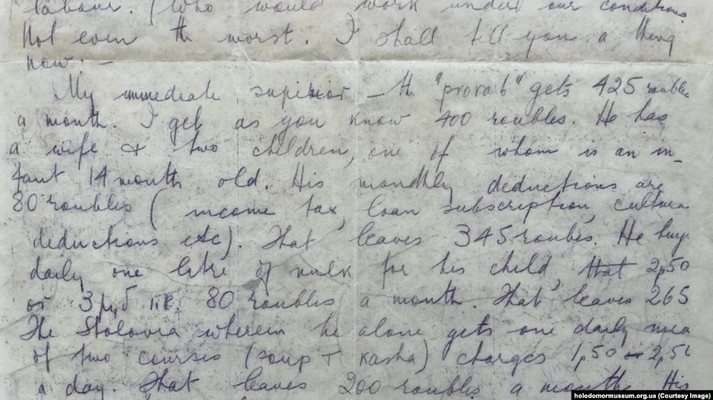 labour. (Who would work under our conditions
Not even the worst. I shall tell you a thing
now. —
My immediate superior — the "prorab" gets 425 roubles
a month. I get as you know 400 roubles. He has
a wife & two children, one of whom is an in-
fant 14 month old. His monthly deductions are
80 roubles (income tax, loan subscription, cultura
deductions etc). That leaves 345 roubles. He buys
daily one litre of milk for his child, that 2,50
or 3 руб 80 roubles a month. That leaves 265
The Stolovia wherein he alone gets one daily mea
of two courses (soup + kasha) charges 1,50 – 2,50
a day. That leaves 200 roubles a month. His
holodomormuseum.org.ua (Courtesy Image)